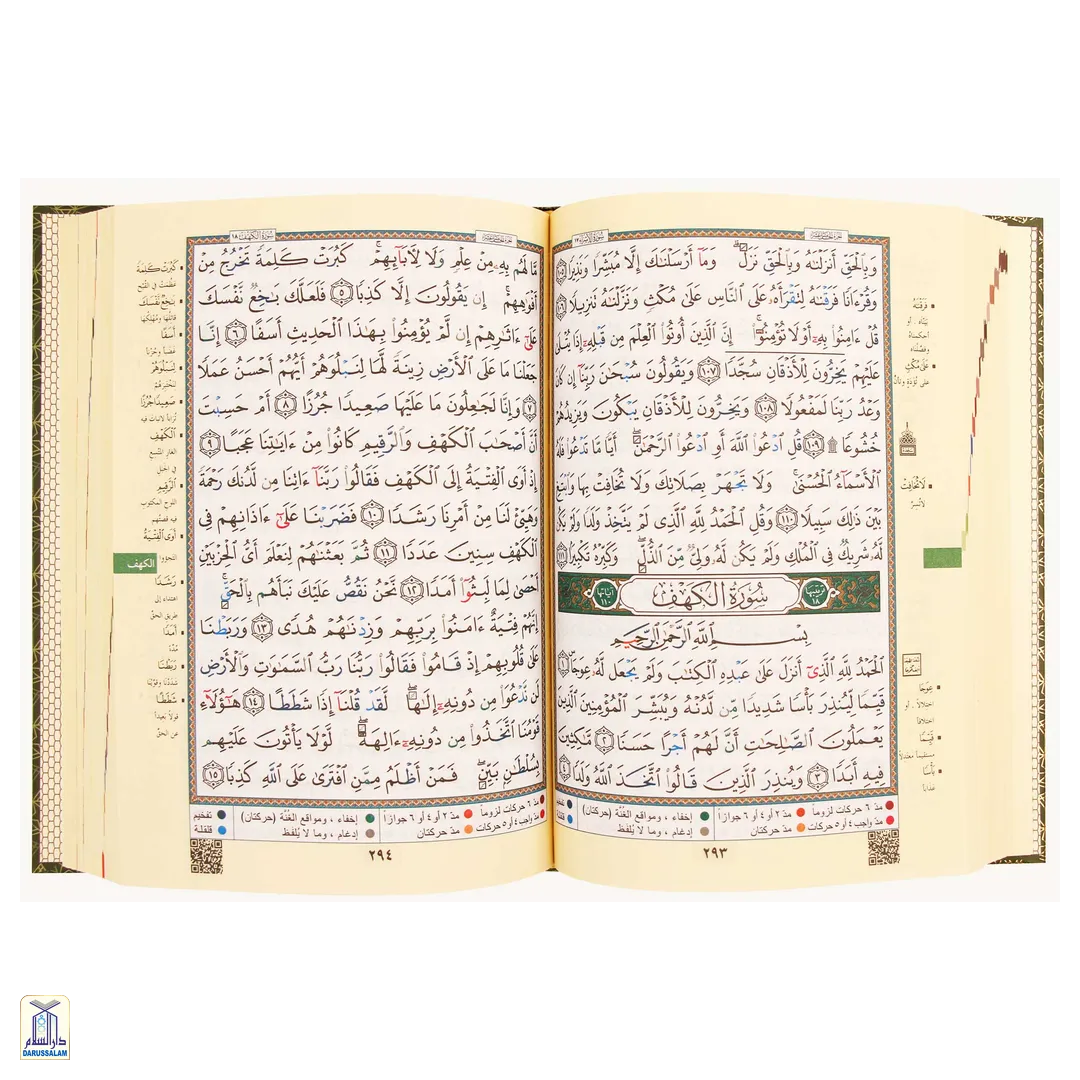 الجزء الخامس عشر
سورة الإسراء ١٧
وَبِالْحَقِّ أَنزَلْنَٰهُ وَبِالْحَقِّ نَزَلَ ۗ وَمَآ أَرْسَلْنَٰكَ إِلَّا مُبَشِّرًا وَنَذِيرًا ١٠٥
وَقُرْءَانًا فَرَقْنَٰهُ لِتَقْرَأَهُۥ عَلَى النَّاسِ عَلَىٰ مُكْثٍ وَنَزَّلْنَٰهُ تَنزِيلًا ١٠٦
قُلْ ءَامِنُوا۟ بِهِۦٓ أَوْ لَا تُؤْمِنُوٓا۟ ۚ إِنَّ الَّذِينَ أُوتُوا۟ الْعِلْمَ مِن قَبْلِهِۦٓ إِذَا يُتْلَىٰ
عَلَيْهِمْ يَخِرُّونَ لِلْأَذْقَانِ سُجَّدًا ١٠٧ وَيَقُولُونَ سُبْحَٰنَ رَبِّنَآ إِن كَانَ
وَعْدُ رَبِّنَا لَمَفْعُولًا ١٠٨ وَيَخِرُّونَ لِلْأَذْقَانِ يَبْكُونَ وَيَزِيدُهُمْ
خُشُوعًا ۩ ١٠٩ قُلِ ادْعُوا۟ اللَّهَ أَوِ ادْعُوا۟ الرَّحْمَٰنَ ۖ أَيًّا مَّا تَدْعُوا۟ فَلَهُ
الْأَسْمَآءُ الْحُسْنَىٰ ۚ وَلَا تَجْهَرْ بِصَلَاتِكَ وَلَا تُخَافِتْ بِهَا وَابْتَغِ
بَيْنَ ذَٰلِكَ سَبِيلًا ١١٠ وَقُلِ الْحَمْدُ لِلَّهِ الَّذِى لَمْ يَتَّخِذْ وَلَدًا وَلَمْ يَكُن
لَّهُۥ شَرِيكٌ فِى الْمُلْكِ وَلَمْ يَكُن لَّهُۥ وَلِىٌّ مِّنَ الذُّلِّ ۖ وَكَبِّرْهُ تَكْبِيرًا ١١١
ترتيبها ١٨ سُورَةُ الكَهْفِ آياتها ١١٠
بِسْمِ اللَّهِ الرَّحْمَٰنِ الرَّحِيمِ
الْحَمْدُ لِلَّهِ الَّذِىٓ أَنزَلَ عَلَىٰ عَبْدِهِ الْكِتَٰبَ وَلَمْ يَجْعَل لَّهُۥ عِوَجَا ١
قَيِّمًا لِّيُنذِرَ بَأْسًا شَدِيدًا مِّن لَّدُنْهُ وَيُبَشِّرَ الْمُؤْمِنِينَ الَّذِينَ
يَعْمَلُونَ الصَّٰلِحَٰتِ أَنَّ لَهُمْ أَجْرًا حَسَنًا ٢ مَّٰكِثِينَ
فِيهِ أَبَدًا ٣ وَيُنذِرَ الَّذِينَ قَالُوا۟ اتَّخَذَ اللَّهُ وَلَدًا ٤
فَرَقْنَاهُ
بيّناه . أو
أحكمناه
وفصّلناه
عَلَىٰ مُكْثٍ
على تُؤَدَةٍ وتأنٍّ
لَا تُخَافِتْ
لا تُسِرّ
عِوَجًا
اختلالاً . أو
اختلافاً
قَيِّمًا
مستقيماً معتدلاً
بَأْسًا
عذاباً
مدّ ٦ حركات لزوماً مدّ ٢ أو ٤ أو ٦ جوازاً إخفاء ، ومواقع الغُنَّة (حركتان)
مدّ واجب ٤ أو ٥ حركات مدّ حركتان إدغام ، وما لا يُلفَظ
٢٩٣
الجزء الخامس عشر
سورة الكهف ١٨
مَّا لَهُم بِهِۦ مِنْ عِلْمٍ وَلَا لِـَٔابَآئِهِمْ ۚ كَبُرَتْ كَلِمَةً تَخْرُجُ مِنْ
أَفْوَٰهِهِمْ ۚ إِن يَقُولُونَ إِلَّا كَذِبًا ٥ فَلَعَلَّكَ بَٰخِعٌ نَّفْسَكَ
عَلَىٰٓ ءَاثَٰرِهِمْ إِن لَّمْ يُؤْمِنُوا۟ بِهَٰذَا الْحَدِيثِ أَسَفًا ٦ إِنَّا
جَعَلْنَا مَا عَلَى الْأَرْضِ زِينَةً لَّهَا لِنَبْلُوَهُمْ أَيُّهُمْ أَحْسَنُ عَمَلًا
٧ وَإِنَّا لَجَٰعِلُونَ مَا عَلَيْهَا صَعِيدًا جُرُزًا ٨ أَمْ حَسِبْتَ
أَنَّ أَصْحَٰبَ الْكَهْفِ وَالرَّقِيمِ كَانُوا۟ مِنْ ءَايَٰتِنَا عَجَبًا ٩
إِذْ أَوَى الْفِتْيَةُ إِلَى الْكَهْفِ فَقَالُوا۟ رَبَّنَآ ءَاتِنَا مِن لَّدُنكَ رَحْمَةً
وَهَيِّئْ لَنَا مِنْ أَمْرِنَا رَشَدًا ١٠ فَضَرَبْنَا عَلَىٰٓ ءَاذَانِهِمْ فِى
الْكَهْفِ سِنِينَ عَدَدًا ١١ ثُمَّ بَعَثْنَٰهُمْ لِنَعْلَمَ أَىُّ الْحِزْبَيْنِ
أَحْصَىٰ لِمَا لَبِثُوٓا۟ أَمَدًا ١٢ نَّحْنُ نَقُصُّ عَلَيْكَ نَبَأَهُم بِالْحَقِّ ۚ
إِنَّهُمْ فِتْيَةٌ ءَامَنُوا۟ بِرَبِّهِمْ وَزِدْنَٰهُمْ هُدًى ١٣ وَرَبَطْنَا
عَلَىٰ قُلُوبِهِمْ إِذْ قَامُوا۟ فَقَالُوا۟ رَبُّنَا رَبُّ السَّمَٰوَٰتِ وَالْأَرْضِ
لَن نَّدْعُوَا۟ مِن دُونِهِۦٓ إِلَٰهًا ۖ لَّقَدْ قُلْنَآ إِذًا شَطَطًا ١٤ هَٰٓؤُلَآءِ
قَوْمُنَا اتَّخَذُوا۟ مِن دُونِهِۦٓ ءَالِهَةً ۖ لَّوْلَا يَأْتُونَ عَلَيْهِم
بِسُلْطَٰنٍۭ بَيِّنٍ ۖ فَمَنْ أَظْلَمُ مِمَّنِ افْتَرَىٰ عَلَى اللَّهِ كَذِبًا ١٥
كَبُرَتْ كَلِمَةً
عَظُمت في القُبح
بَاخِعٌ نَفْسَكَ
قاتلها ومُهلكها
أَسَفًا
غضباً وحُزناً
لِنَبْلُوَهُمْ
لنختبرهم
صَعِيدًا جُرُزًا
تُراباً لا نبات فيه
الْكَهْفِ
الغار المتّسع
في الجبل
الرَّقِيمِ
اللوح المكتوب
فيه قصتهم
أَوَى الْفِتْيَةُ
التجؤوا
الكهف
رَشَدًا
اهتداء إلى
طريق الحق
أَمَدًا
مُدّة
رَبَطْنَا
شددنا وقوّينا
شَطَطًا
قولاً بعيداً
عن الحق
مدّ ٦ حركات لزوماً مدّ ٢ أو ٤ أو ٦ جوازاً إخفاء ، ومواقع الغُنَّة (حركتان) تفخيم
مدّ واجب ٤ أو ٥ حركات مدّ حركتان إدغام ، وما لا يُلفَظ قلقلة
٢٩٤
دار السلام
DARUSSALAM